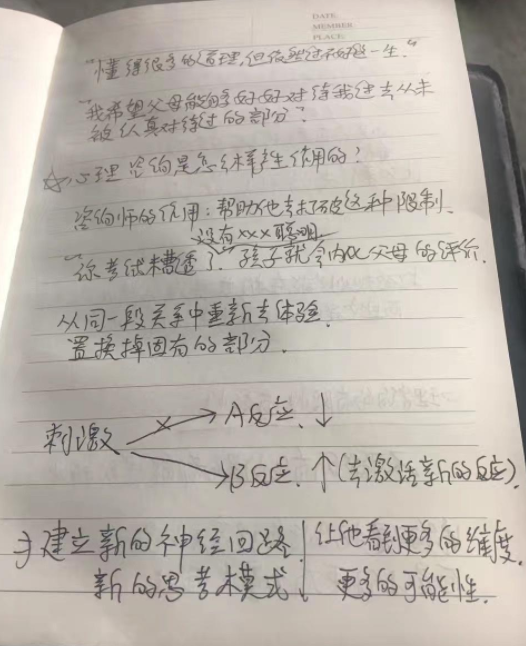 DATE:
MEMBER:
PLACE:
"懂得很多的道理,但依然过不好这一生."
"我希望父母能够好好对待我过去从未
被认真对待过的部分".
☆心理咨询是怎么样产生作用的?
咨询师的作用:帮助他去打破这种限制.
没有xxx聪明
"你考试糟透了" 孩子就会内化父母的评价.
从同一段关系中重新去体验.
置换掉固有的部分.
刺激
A反应. ↓
B反应. ↑(去激活新的反应).
建立新的神经回路 让他看到更多的维度.
新的思考模式 更多的可能性.